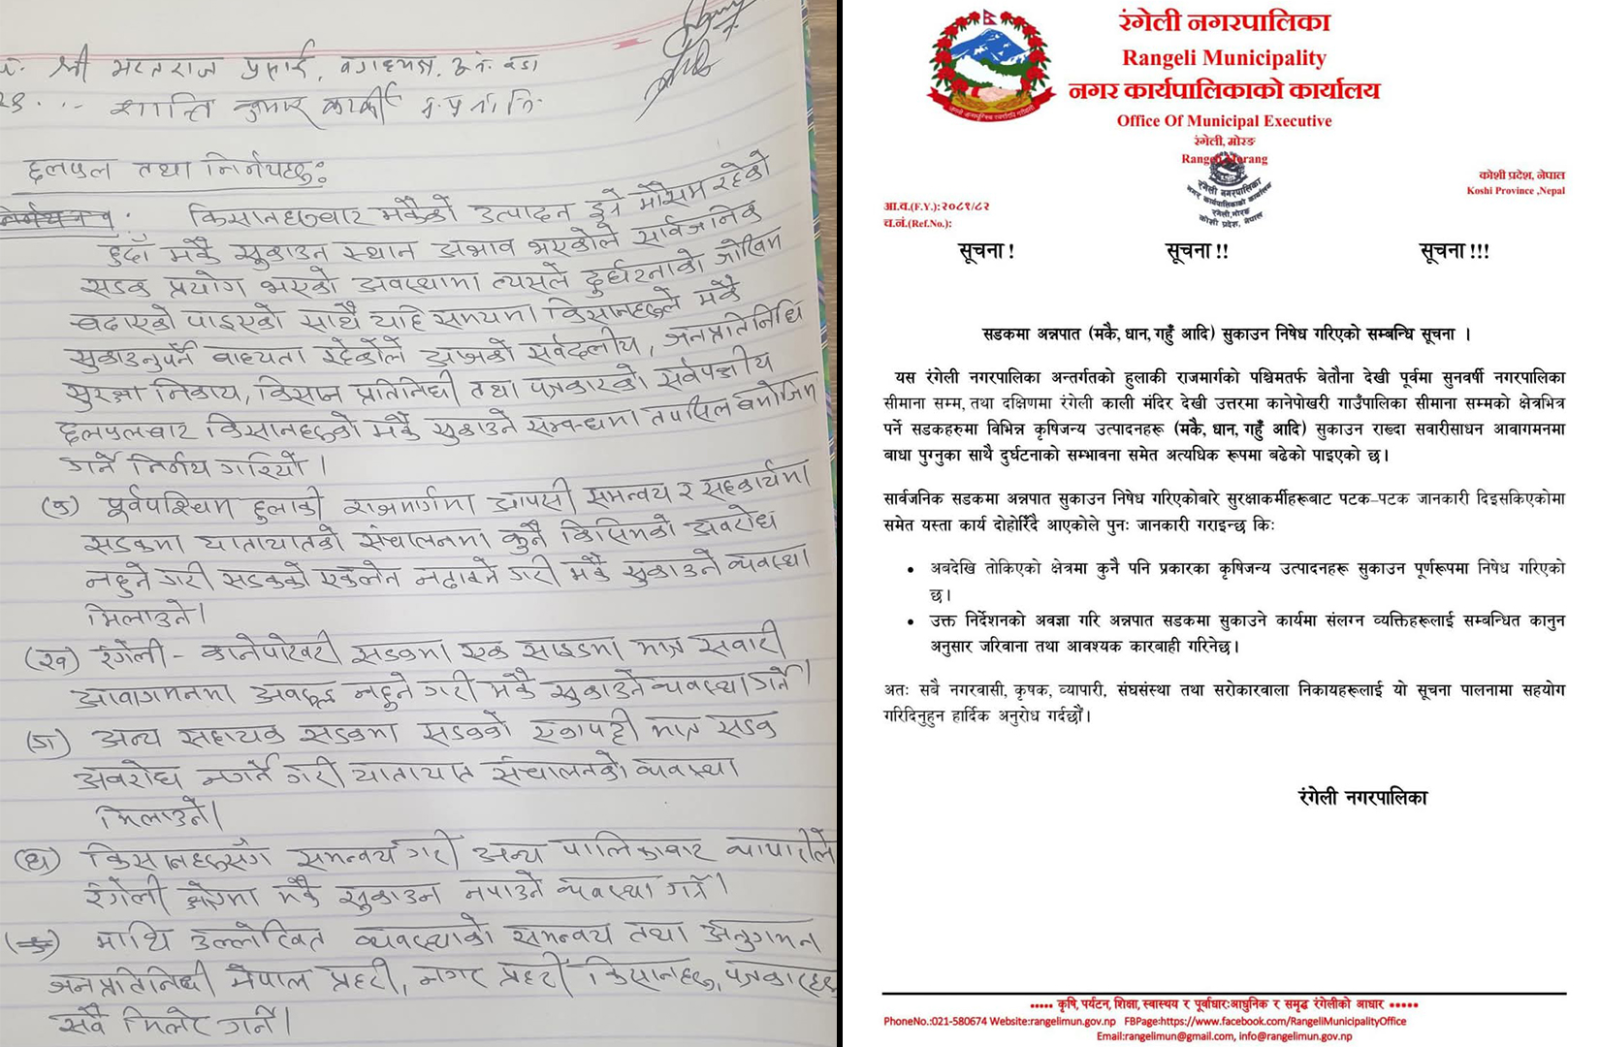 श्री भरतराज प्रसाई, वडाध्यक्ष,
शान्ति कुमार कार्की
छलफल तथा निर्णयहरुः
किसानहरुबाट मकैको उत्पादन हुने मौसम रहेको
हुँदा मकै सुकाउन स्थान अभाव भएकोले सार्वजनिक
सडक प्रयोग भएको अवस्थामा त्यसले दुर्घटनाको जोखिम
बढाएको पाइएको साथै यहि समयमा किसानहरुले मकै
सुकाउनुपर्ने बाध्यता रहेकोले आजको सर्वदलीय, जनप्रतिनिधि
सुरक्षा निकाय, किसान प्रतिनिधी तथा पत्रकारको सर्वपक्षीय
छलफलबाट किसानहरुको मकै सुकाउने सम्बन्धमा तपसिल बमोजिम
गर्ने निर्णय गरियो।
(क) पूर्वपश्चिम हुलाकी राजमार्गमा आपसी समन्वय र सहकार्यमा
सडकमा यातायातको संचालनमा कुनै किसिमको अवरोध
नहुने गरी सडकको एकलेन नढाक्ने गरी मकै सुकाउने व्यवस्था
मिलाउने।
(ख) रंगेली - कानेपोखरी सडकमा एक साइडमा मात्र सवारी
आवागमनमा अवरुद्ध नहुने गरी मकै सुकाउने व्यवस्था गर्ने।
(ग) अन्य सहायक सडकमा सडकको एकापट्टी मात्र सडक
अवरोध नगर्ने गरी यातायात संचालनको व्यवस्था
मिलाउने।
(घ) किसानहरुसँग समन्वय गरी अन्य पालिकाबाट व्यापारीले
रंगेली क्षेत्रमा मकै सुकाउन नपाउने व्यवस्था गर्ने।
माथि उल्लेखित व्यवस्थाको समन्वय तथा अनुगमन
जनप्रतिनिधी नेपाल प्रहरी, नगर प्रहरी किसानहरु, पत्रकारहरु
सवै मिलेर गर्ने।
रंगेली नगरपालिका
Rangeli Municipality
नगर कार्यपालिकाको कार्यालय
Office Of Municipal Executive
रंगेली, मोरङ
Rangeli, Morang
रंगेली नगरपालिका
नगर कार्यपालिकाको कार्यालय
रंगेली, मोरङ
कोशी प्रदेश, नेपाल
कोशी प्रदेश, नेपाल
Koshi Province ,Nepal
आ.व.(F.Y.):२०८१/८२
च.नं.(Ref.No.):
सूचना ! सूचना !! सूचना !!!
सडकमा अन्नपात (मकै, धान, गहुँ आदि) सुकाउन निषेध गरिएको सम्बन्धि सूचना ।
यस रंगेली नगरपालिका अन्तर्गतको हुलाकी राजमार्गको पश्चिमतर्फ बेतौना देखी पूर्वमा सुनवर्षी नगरपालिका
सीमाना सम्म, तथा दक्षिणमा रंगेली काली मंदिर देखी उत्तरमा कानेपोखरी गाउँपालिका सीमाना सम्मको क्षेत्रभित्र
पर्ने सडकहरुमा विभिन्न कृषिजन्य उत्पादनहरू (मकै, धान, गहुँ आदि) सुकाउन राख्दा सवारीसाधन आवागमनमा
बाधा पुग्नुका साथै दुर्घटनाको सम्भावना समेत अत्यधिक रूपमा बढेको पाइएको छ।
सार्वजनिक सडकमा अन्नपात सुकाउन निषेध गरिएकोबारे सुरक्षाकर्मीहरूबाट पटक–पटक जानकारी दिइसकिएकोमा
समेत यस्ता कार्य दोहोरिँदै आएकोले पुनः जानकारी गराइन्छ किः
• अबदेखि तोकिएको क्षेत्रमा कुनै पनि प्रकारका कृषिजन्य उत्पादनहरू सुकाउन पूर्णरूपमा निषेध गरिएको
छ।
• उक्त निर्देशनको अवज्ञा गरि अन्नपात सडकमा सुकाउने कार्यमा संलग्न व्यक्तिहरूलाई सम्बन्धित कानुन
अनुसार जरिवाना तथा आवश्यक कारबाही गरिनेछ।
अतः सबै नगरवासी, कृषक, व्यापारी, संघसंस्था तथा सरोकारवाला निकायहरूलाई यो सूचना पालनामा सहयोग
गरिदिनुहुन हार्दिक अनुरोध गर्दछौं।
रंगेली नगरपालिका
••••• कृषि, पर्यटन, शिक्षा, स्वास्थ्य र पूर्वाधारःआधुनिक र समृद्ध रंगेलीको आधार •••••
PhoneNo.:021-580674 Website:rangelimun.gov.np FBPage:https://www.facebook.com/RangeliMunicipalityOffice
Email:rangelimun@gmail.com, info@rangelimun.gov.np